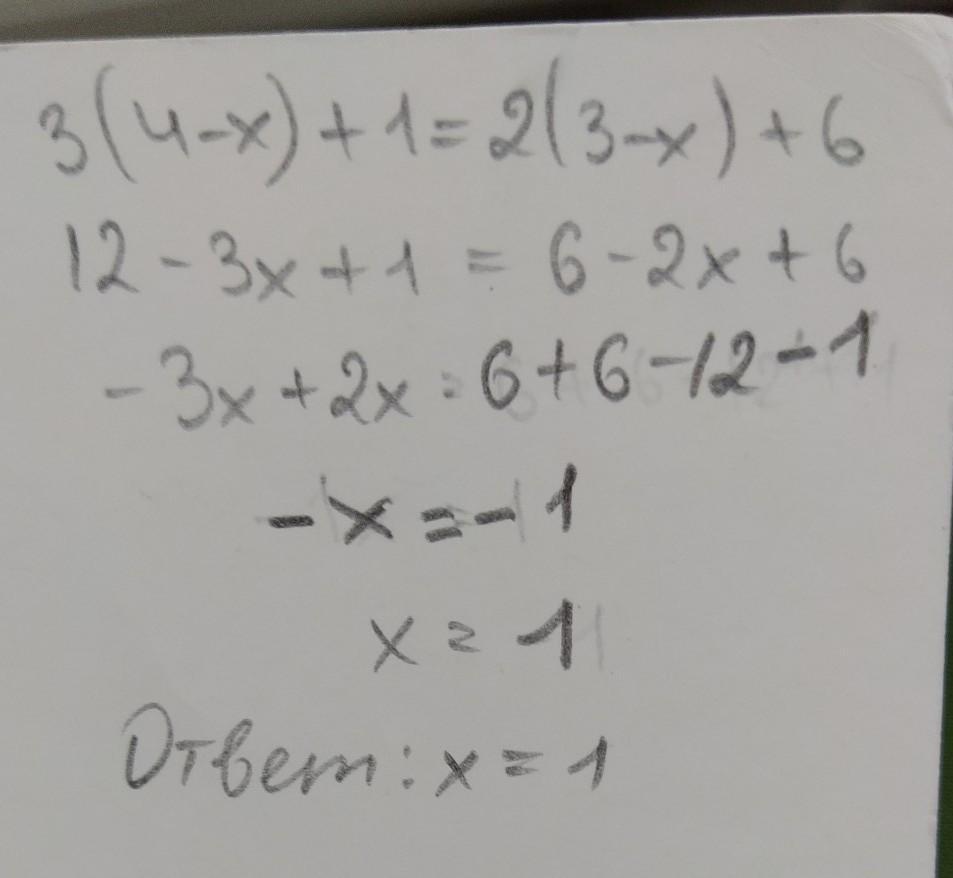 3(4-x)+1=2(3-x)+6
12-3x+1=6-2x+6
-3x+2x=6+6-12-1
-x=-1
x=1
Ответ: x=1